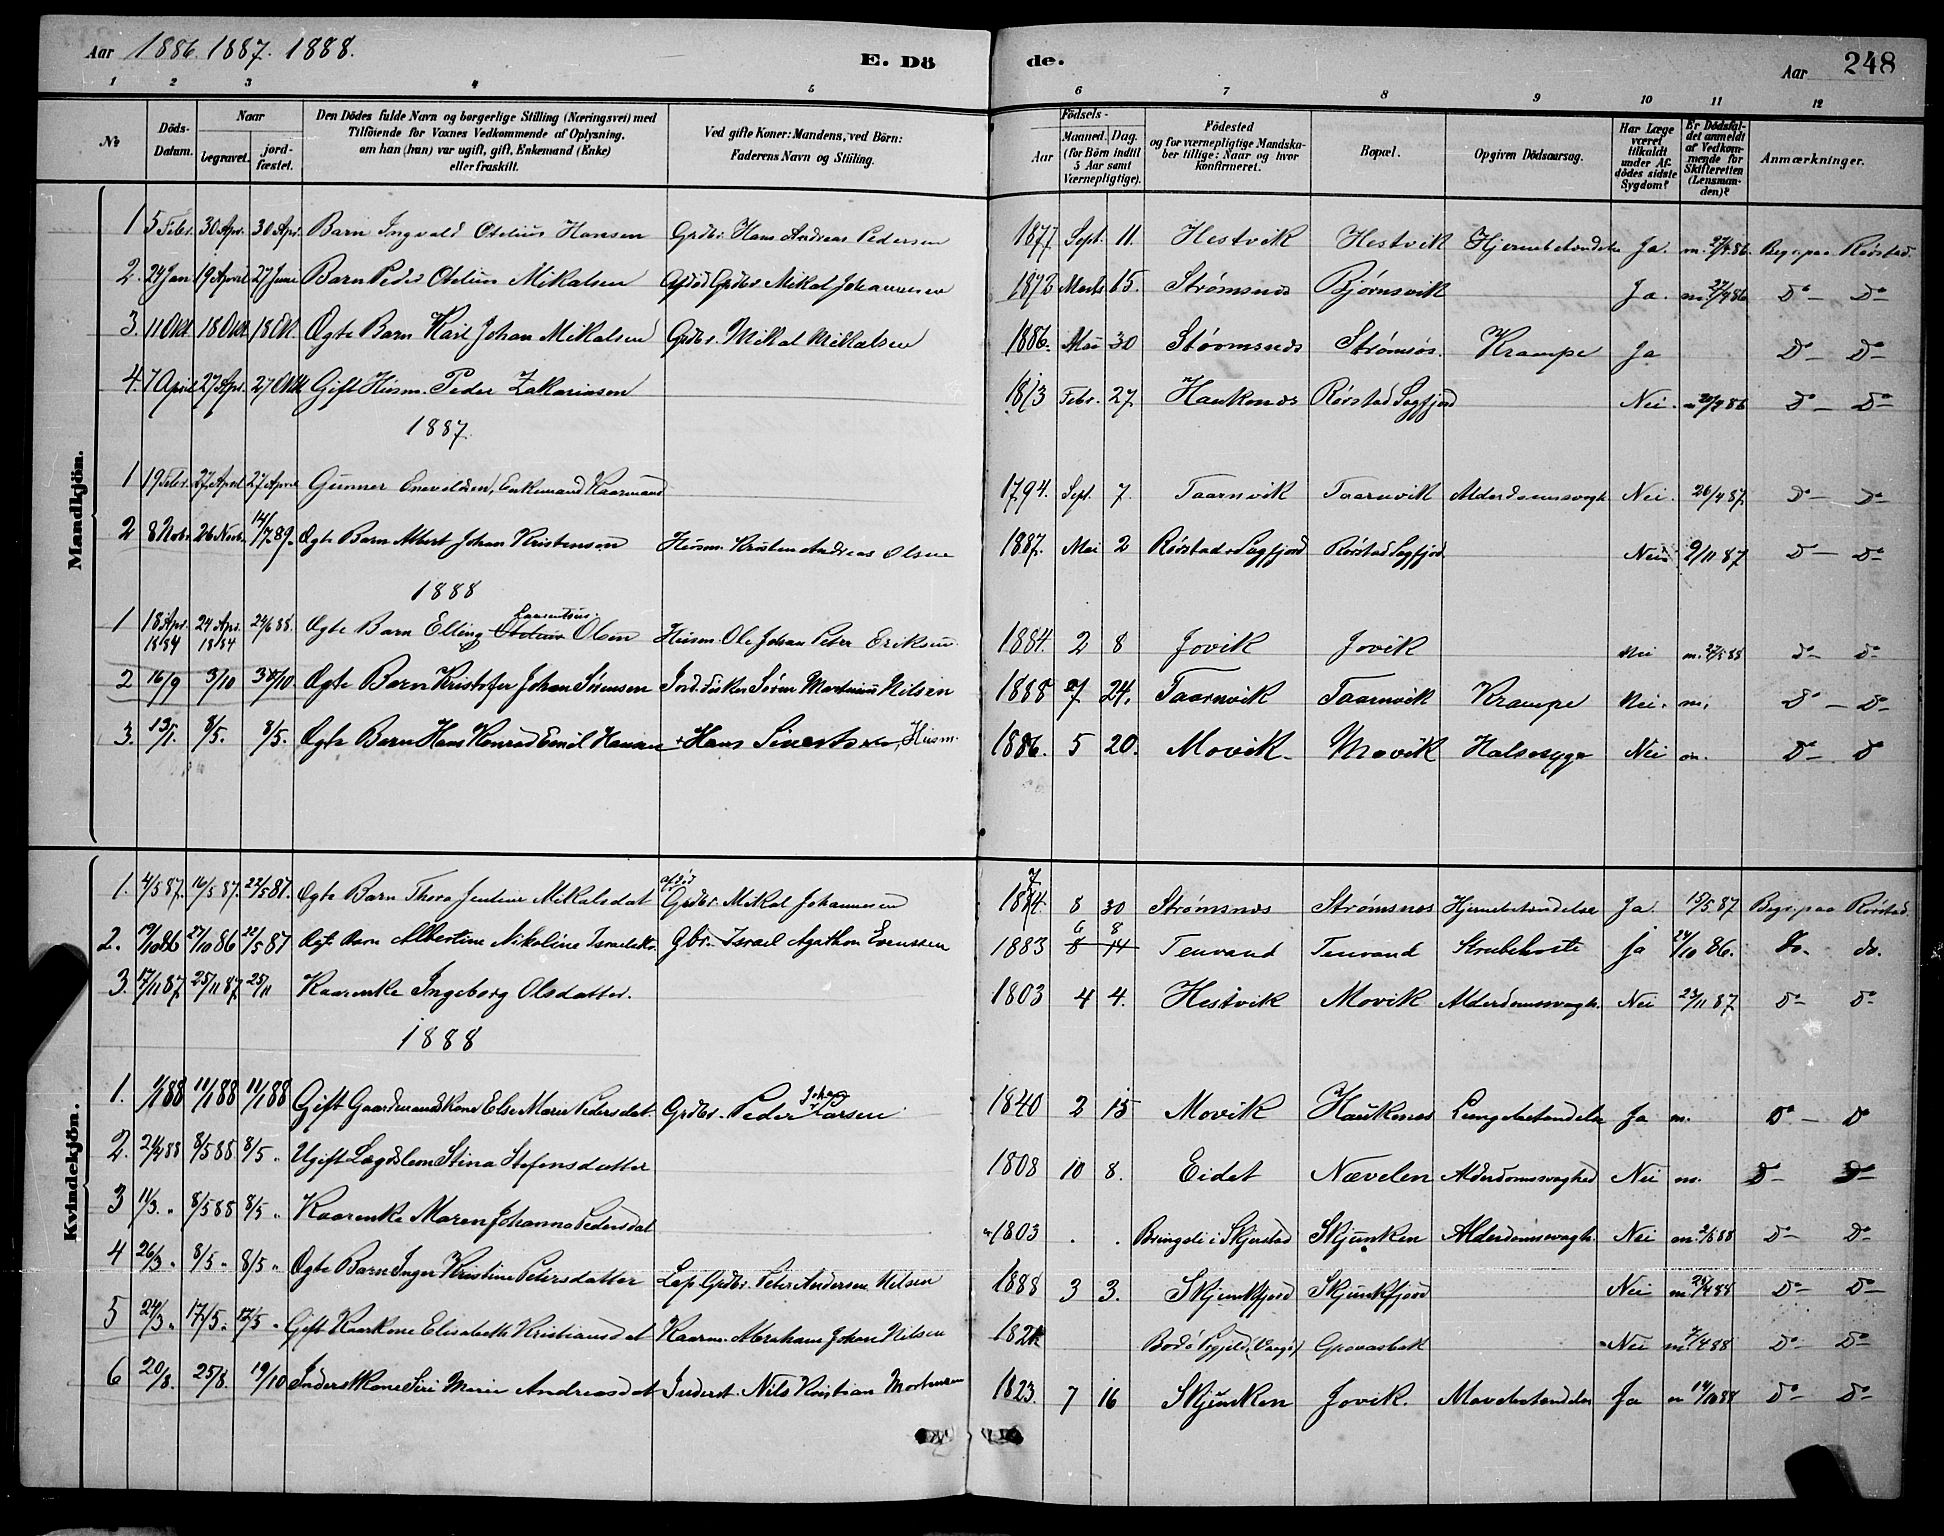 Aar 1886. 1887. 1888.
E. Dö
de.
Aar 248
1 2 3 4 5 6 7 8 9 10 11 12
No
Döds-Datum.
Naar
begravet.
jord-fæstet.
Den Dödes fulde Navn og borgerlige Stilling (Næringsvei) med
Tilföiende for Voxnes Vedkommende af Oplysning,
om han (hun) var ugift, gift, Enkemand (Enke)
eller fraskilt.
Ved gifte Koner: Mandens, ved Börn:
Faderens Navn og Stilling.
Födsels-
Aar
Maaned. Dag.
(for Börn indtil
5 Aar samt
Værnepligtige).
Födested
og for værnepligtige Mandska-
ber tillige: Naar og hvor
konfirmeret.
Bopæl.
Opgiven Dödsaarsag.
Har Læge
været
tilkaldt
under Af-
dödes sidste
Sygdom?
Er Dödsfal-
det anmeldt
af Vedkom-
mende for
Skifteretten
(Lensman-
den)?
Anmærkninger.
Mandkjön.
1 5 Febr. 30 Apr. 30 Apr. Barn Ingvald Otelius Hansen Grdbr. Hans Andreas Pedersen 1877 Sept. 11. Hestvik Hestvik Hjernebetændelse Ja. m. 27/4 86. Begr. paa Rørstad.
2. 24 Jan 19 April 27 Juni Barn Peder Otelius Mikalsen Afdød Grdbr. Mikal Johannesen Marts 15. Strømsnes Bjørnsvik Ja. D° D°
3. 11 Okt 18 Okt 18 Okt. Ægte Barn Karl Johan Mikalsen Grdbr. Mikal Mikkalsen 1886. Mai 30 Størmsnes Strømsøs. Krampe Ja D° D°
4. 7 April 27 Apr. 27 Okt Gift Husm. Peder Zakariasen 1813 Febr. 27 Haukenes Rørstad Sagfjord Nei. D° D°
1887.
1 19 Febr. 27 April 27 April Gunner Enevoldsen, Enkemand Kaarmand 1794. Sept. 7. Taarnvik Taarnvik Alderdomssvagh. Nei. 26/4 87. D° D°
2 8 Nob. 26 Novb. 14/7 89. Ægte Barn Albert Johan Kristensen Husm. Kristen Andreas Olsen 1887. Mai 2 Rørstad Sagfjord Rørstad Sagfjord Nei 9/11 87 D° D°
1888
1 18 Apr. 1884 24 Apr. 1884 24/6 88. Ægte Barn Elling Laurentius Otelius Olsen Husm. Ole Johan Peter Eriksen 1884. 2 8 Jovik Jovik Nei D° D°
2 16/9 3/10 Ægte Barn Kristofer Johan Sørensen Søren Martinius Nilsen 1888 7 24. Taarnvik Taarnvik Krampe Nei. m. D° D°
3. 13/1. 8/5. 8/5. Ægte Barn Hans Konrad Emil Hansen Hans Sivertsen, Husm. 1886. 5 20. Movik Movik Halssyge Nei m. D° D°
Kvindekjön.
1. 4/5 87. 16/5 87. 22/5 87. Ægte Barn Thora Jentine Mikalsdat afdød Grdbr. Mikal Johannesen 8 30 Strømsnes Strømsnes Hjernebetændelse Ja. 15/5 87 Begr. paa Rørstad.
2. 19/10 86 27/10 86 22/5 87 Ægt. Barn Albertine Nikoline Israelsdtr. Gbr. Israel Agathon Evensen 1883 6 8 8 14 Tenvand Tenvand Strubehoste Ja 24/10 86. do. do.
3. 17/11 87. 25/11 87. 25/11 Kaarenke Ingeborg Olsdatter. 1803 4 4. Hestvik Movik Alderdomssvagh. Nei 23/11 87 D° D°
1888
1. 1/1 88 11/1 88 11/1 88 Gift Gaardmandskone Else Marie Pedersdat. Grdbr. Peder Johan Larsen 1840 2 15 Movik Haukenes Lungebetændelse Ja m. D° D°
2. 21/4 88 8/5 88 8/5 " Ugift Lægdslem Stina Stefensdatter 1808 10 8. Eidet Nævelen Alderdomssvaghed Nei m. D° D°
3 11/3. " 8/5 88 8/5 " Kaarenke Maren Johanna Pedersdat 1803 . . Bringsli i Skjerstad Skjunken Alderdomssvagh. Nei m. 2/5 88 D° D°
4 26/3 " 8/5 " 8/5 " Ægte Barn Inger Kristine Petersdatter Lap Grdbr. Peter Andersen Nilsen 1888 3 3. Skjunkfjord Skjunkfjord Nei D° D°
5 24/3 " 17/5 " 17/5 " Gift Kaarkone Elisabeth Kristiansdat Kaarm. Abraham Johan Nilsen Grovasbak Nei D° D°
6 20/8. 25/8. 19/10 Inderstkone Siri Marie Andreasdat Inderst. Nils Kristian Mortensen 1823. 7 16 Skjunken Jovik. Mavebetændelse Ja 14/10 88 D° D°